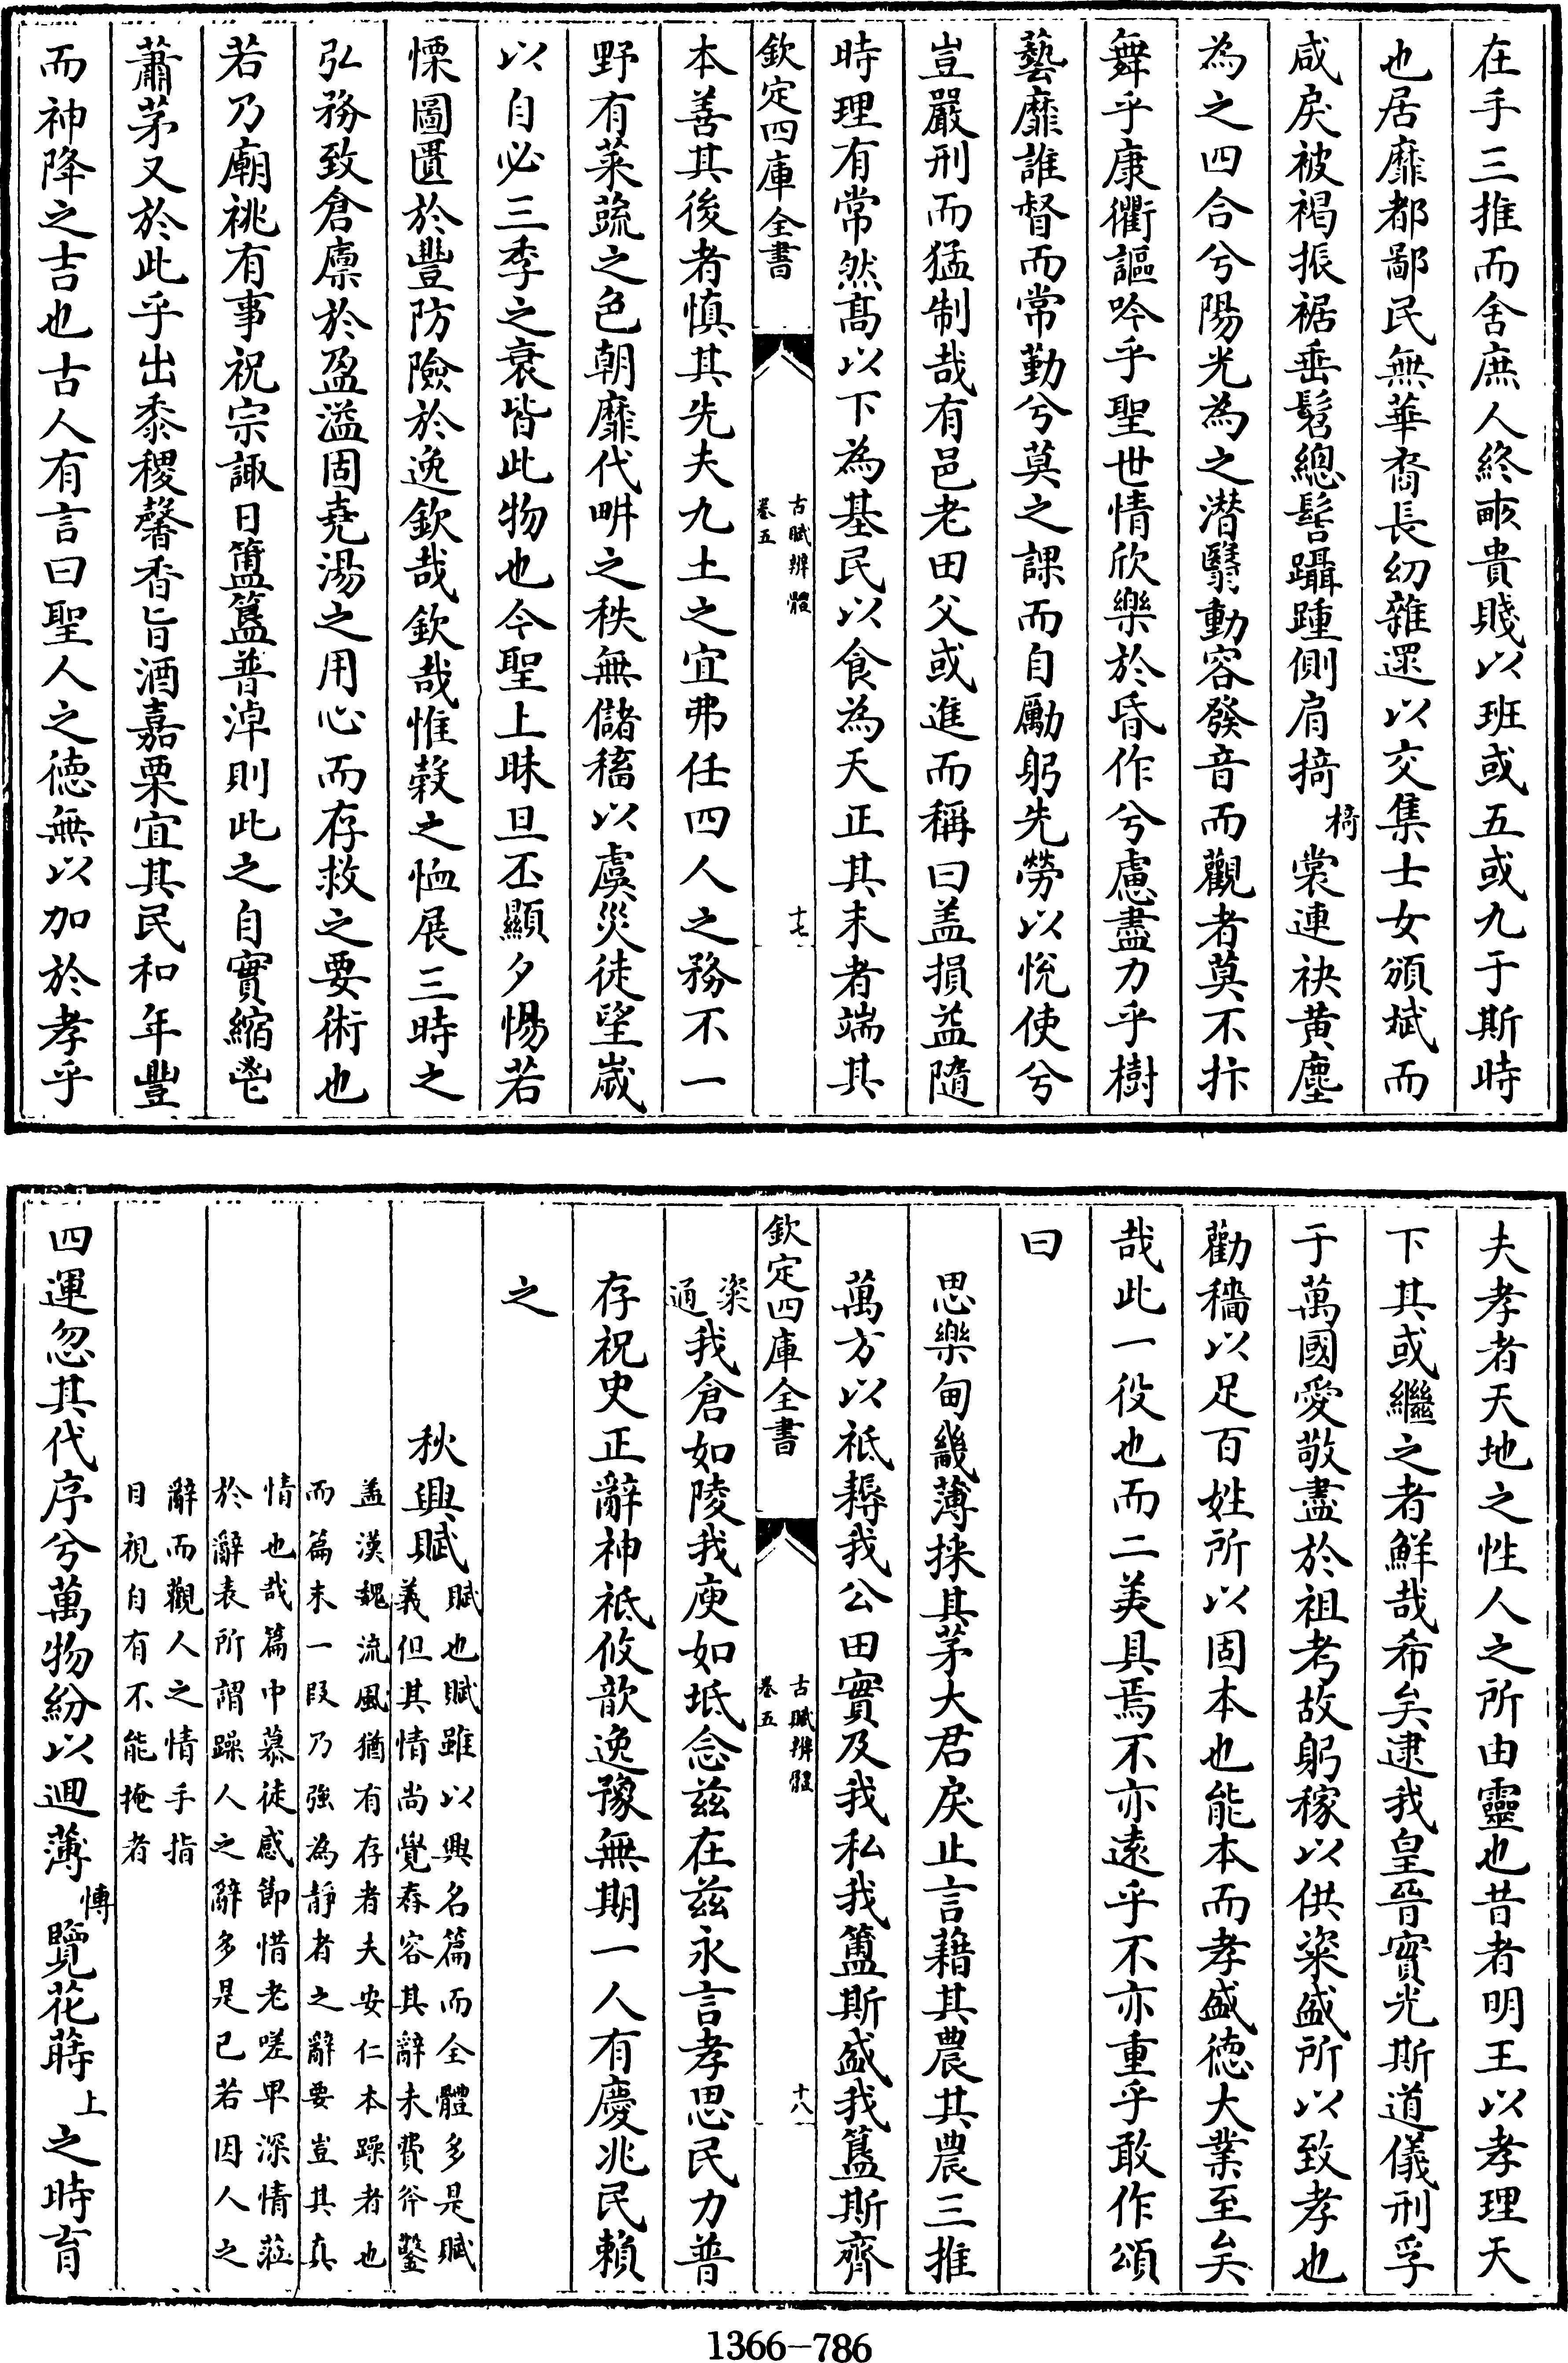 在手三推而舍庶人終畝貴賤以班或五或九于斯時
也居靡都鄙民無華裔長幼雜遝以交集士女頒斌而
咸戾被褐振裾垂髫總髻躡踵側肩掎椅裳連袂黄塵
為之四合兮陽光為之潜翳動容發音而觀者莫不抃
舞乎康衢謳吟乎聖世情欣樂於昏作兮慮盡力乎樹
藝靡誰督而常勤兮莫之課而自勵躬先勞以悅使兮
豈嚴刑而猛制哉有邑老田父或進而稱曰盖損益隨
時理有常然髙以下為基民以食為天正其末者端其
欽定四庫全書
古賦辨體
卷五
十七
本善其後者慎其先夫九土之宜弗任四人之務不一
野有菜蔬之色朝靡代畊之秩無儲稸以虞災徒望嵗
以自必三季之衰皆此物也今聖上昧旦丕顯夕惕若
慄圖匱於豐防險於逸欽哉欽哉惟穀之恤展三時之
弘務致倉廪於盈溢固堯湯之用心而存救之要術也
若乃廟祧有事祝宗諏日簠簋普淖則此之自實縮鬯
蕭茅又於此乎出黍稷馨香旨酒嘉栗宜其民和年豐
而神降之吉也古人有言曰聖人之徳無以加於孝乎
夫孝者天地之性人之所由靈也昔者明王以孝理天
下其或繼之者鮮哉希矣逮我皇晉實光斯道儀刑孚
于萬國愛敬盡於祖考故躬稼以供粢盛所以致孝也
勸穡以足百姓所以固本也能本而孝盛徳大業至矣
哉此一役也而二美具焉不亦逺乎不亦重乎敢作頌
曰
思樂甸畿薄採其茅大君戾止言籍其農其農三推
萬方以祗耨我公田實及我私我簠斯盛我簋斯齊
欽定四庫全書
古賦辨體
卷五
十八
粢通我倉如陵我庾如坻念兹在兹永言孝思民力普
存祝史正辭神祇攸歆逸豫無期一人有慶兆民賴
之
秋興賦賦也賦雖以興名篇而全體多是賦
義但其情尚覺舂容其辭未費斧鑿
盖漢魏流風猶有存者夫安仁本躁者也
而篇末一段乃強為靜者之辭要豈其真
情也哉篇中慕徒感節惜老嗟卑深情茲
於辭表所謂躁人之辭多是已若因人之
辭而觀人之情手指
目視自有不能掩者
四運忽其代序兮萬物紛以迴薄愽覽花蒔上之時育
1366-786